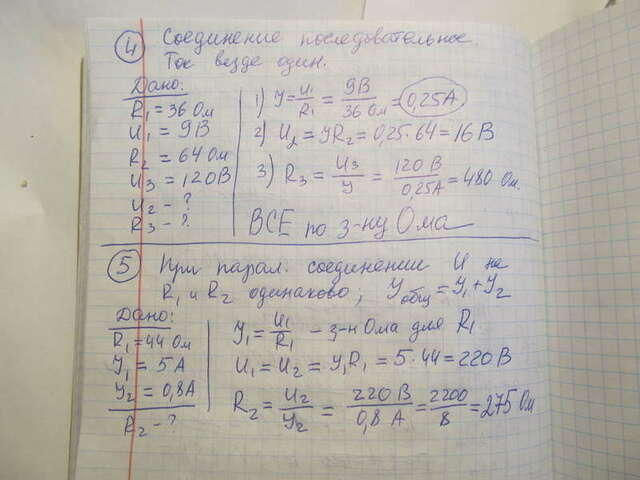 4 Соединение последовательное.
Ток везде один.
Дано:
R₁ = 36 Ом
U₁ = 9В
R₂ = 64 Ом
U₃ = 120В
U₂ - ?
R₃ - ?
1) У = U₁/R₁ = 9В/36 Ом = 0,25А
2) U₂ = УR₂ = 0,25·64 = 16 В
3) R₃ = U₃/У = 120 В/0,25А = 480 Ом.
ВСЕ по з-ну Ома
5 При парал. соединении U на
R₁ и R₂ одинаково; Уобщ = У₁ + У₂
Дано:
R₁ = 44 Ом
У₁ = 5А
У₂ = 0,8А
R₂ - ?
У₁ = U₁/R₁ - з-н Ома для R₁
U₁ = U₂ = У₁R₁ = 5·44 = 220 В
R₂ = U₂/У₂ = 220 В/0,8 А = 2200/8 = 275 Ом